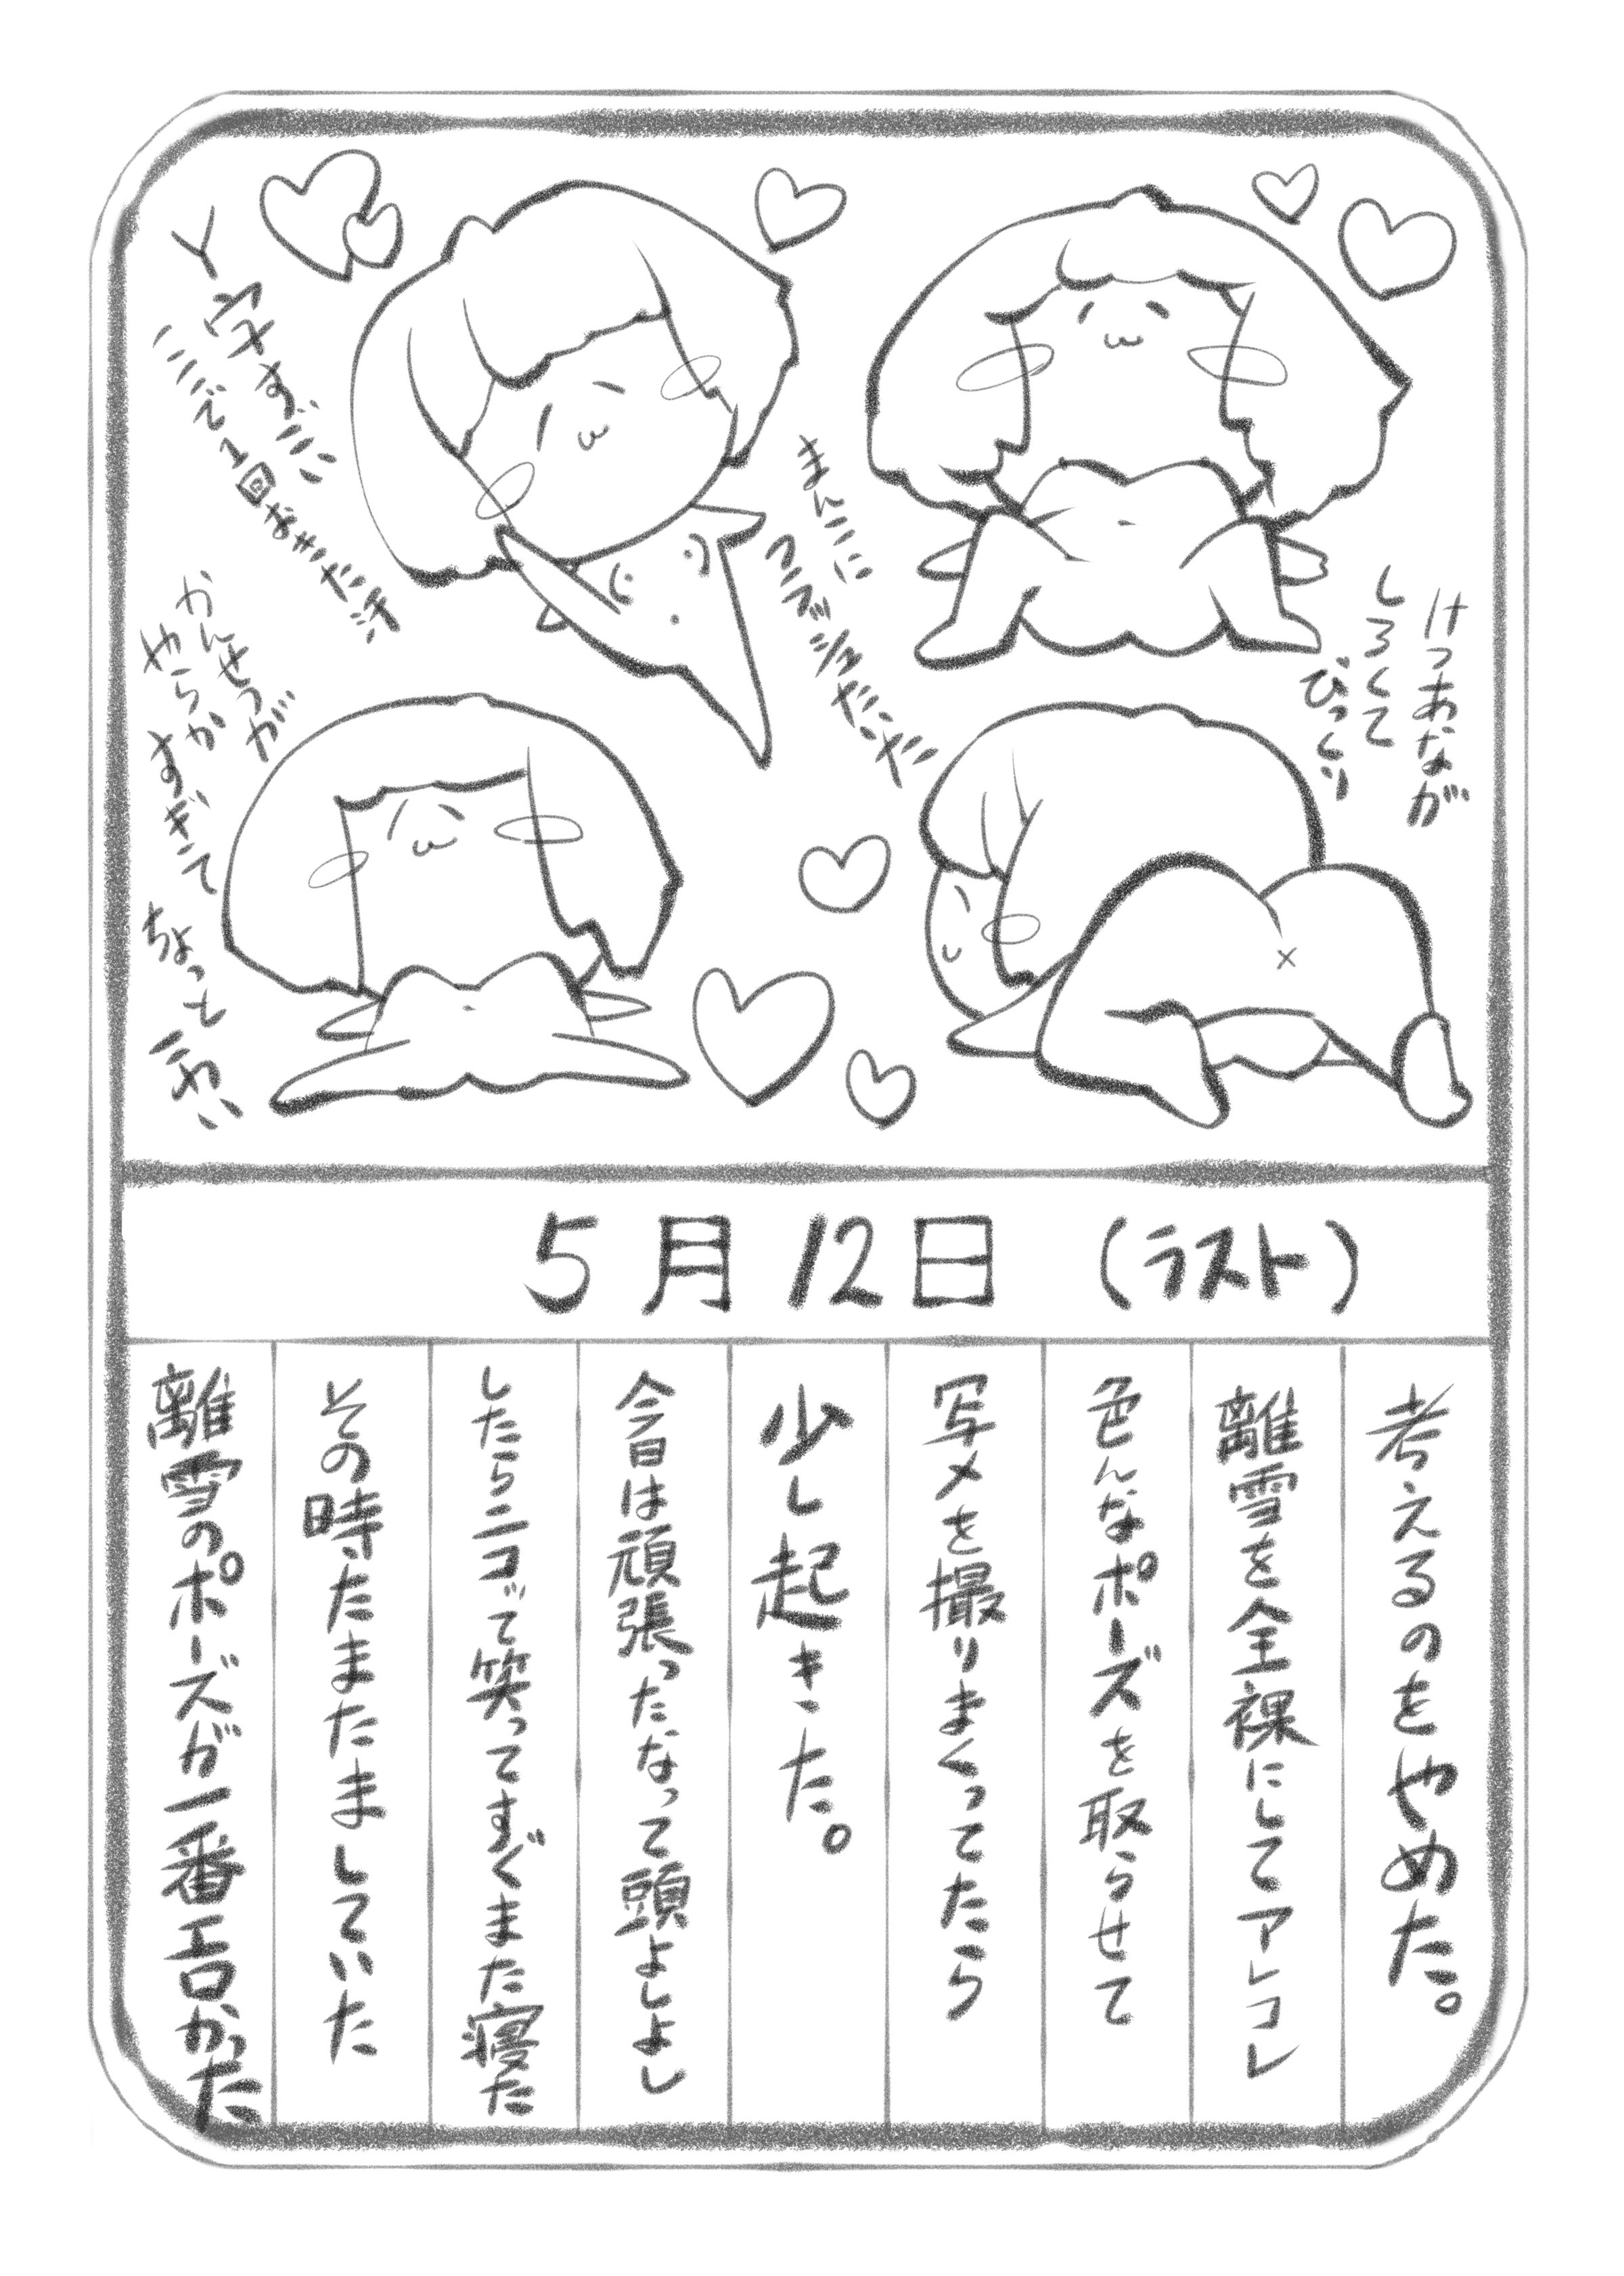 けつあなが
しろくて
びっくり
まんこに
フラッシュたいだ
Y字すごい
ここで1回おきた汗
かんせつが
やらか
すぎて
ちょっと
こわい
5月12日 (ラスト)
考えるのをやめた。
離雪を全裸にしてアレコレ
色んなポーズを取らせて
写メを撮りまくってたら
少し起きた。
今日は頑張ったなって頭よしよし
したらニコって笑ってすぐまた寝た
その時たまたましていた
離雪のポーズが一番エロかった